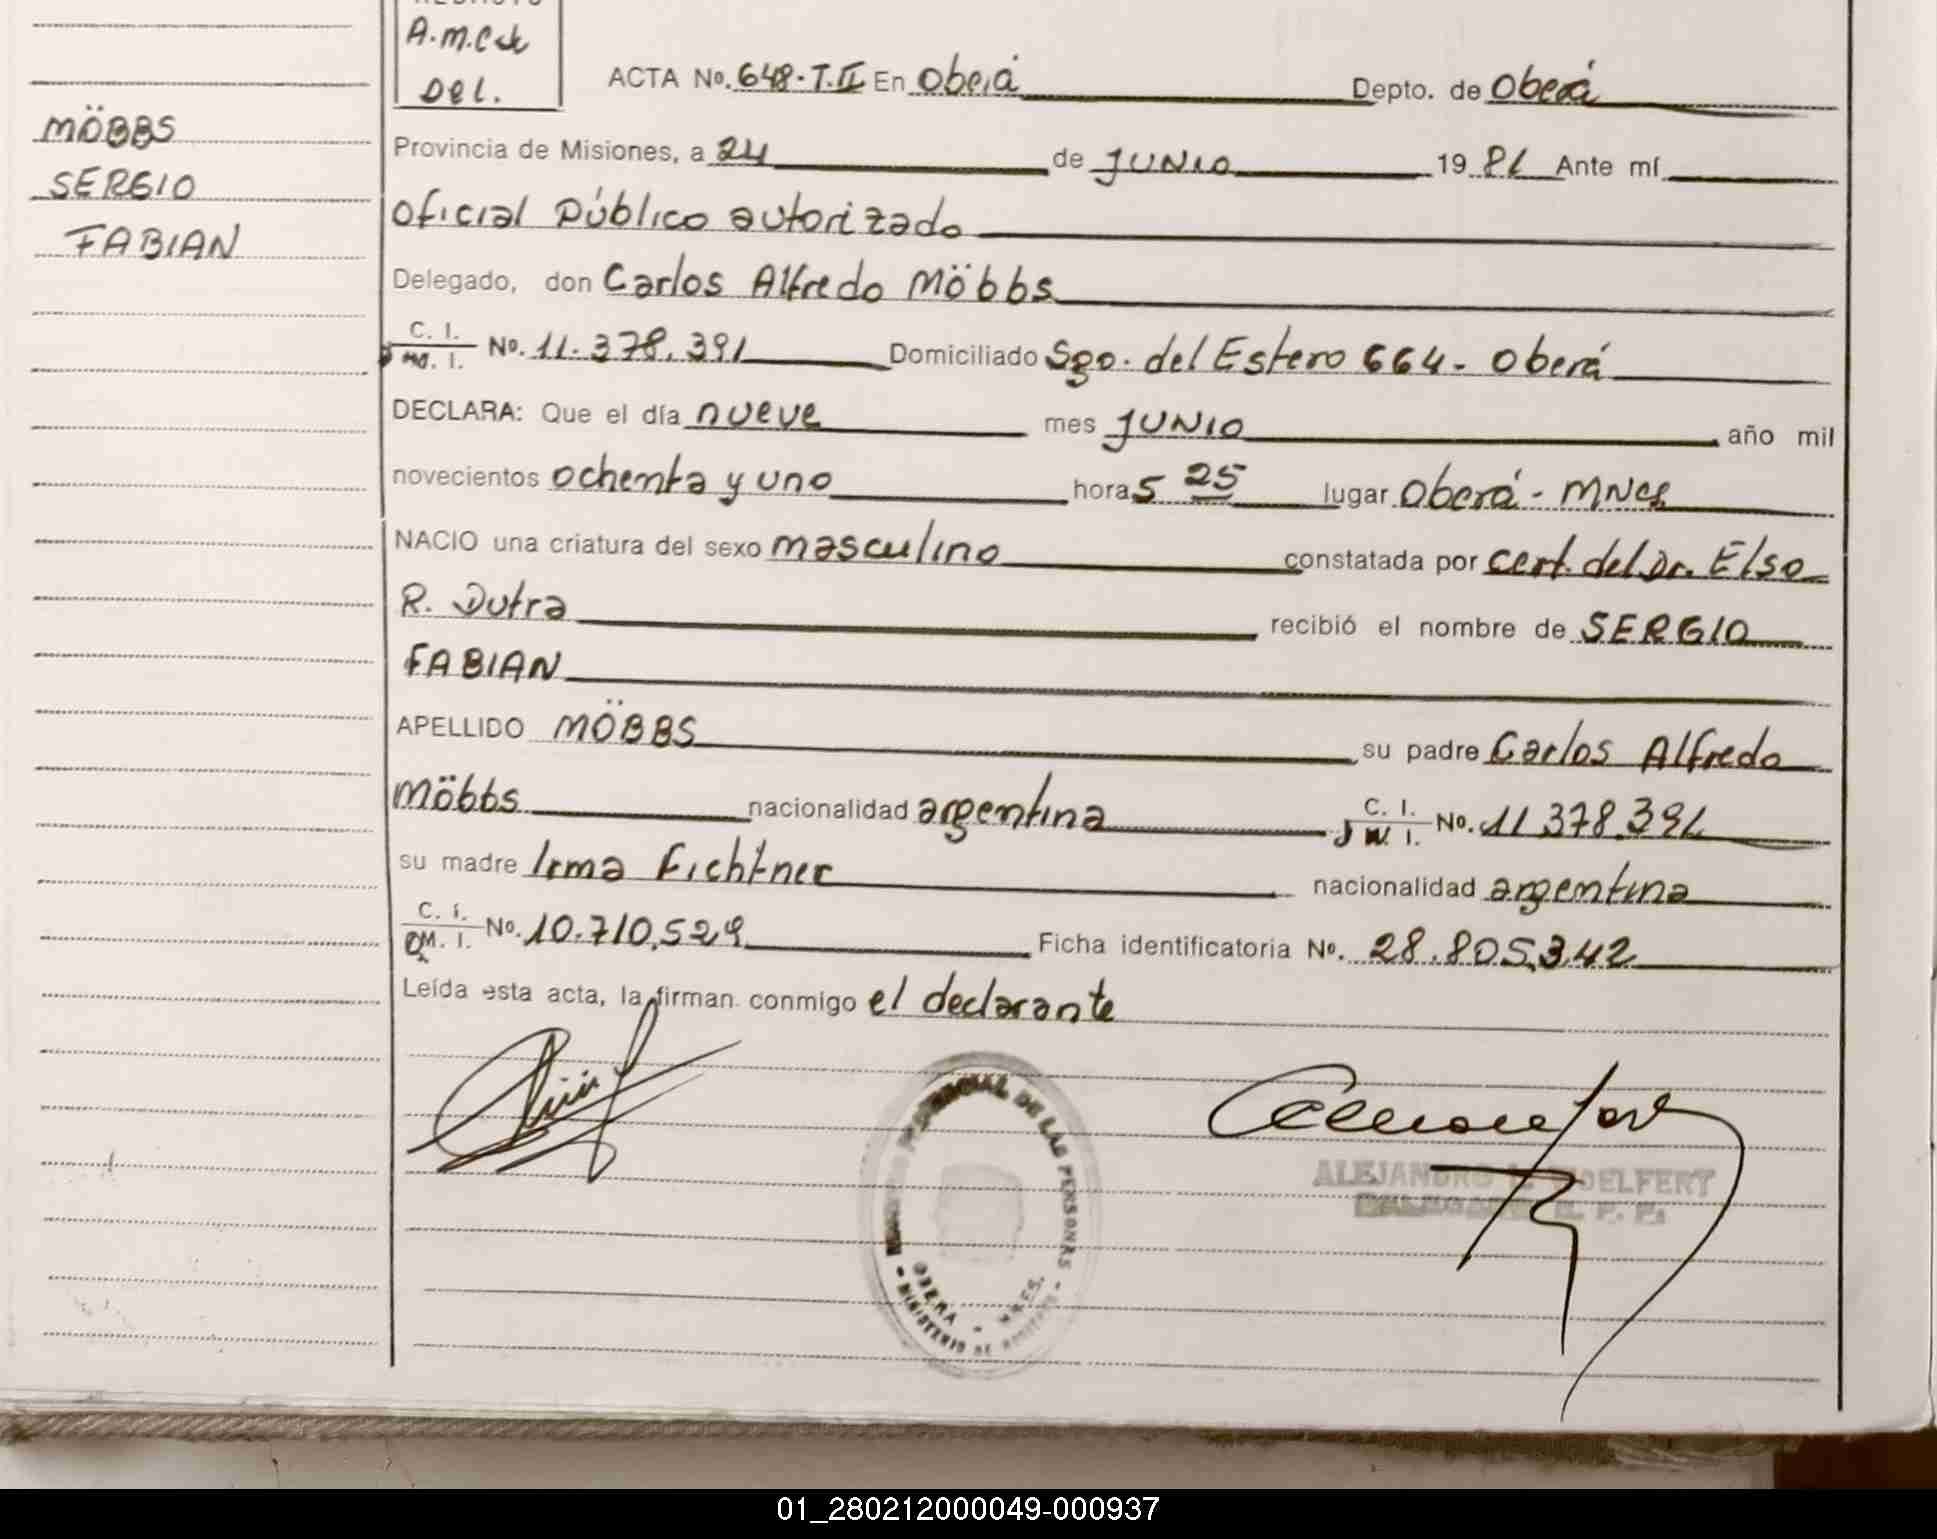 A.M.C
Del.
MÖBBS
SERGIO
FABIAN
ACTA No. 648-T.II En Oberá Depto. de Oberá
Provincia de Misiones, a 24 de JUNIO 1981 Ante mí
oficial Público autorizado
Delegado, don Carlos Alfredo Möbbs
C. I.
M. I. No. 11.378.391 Domiciliado Sgo. del Estero 664- Oberá
DECLARA: Que el día nueve mes JUNIO año mil
novecientos ochenta y uno hora 5 25 lugar Oberá - MNes
NACIO una criatura del sexo masculino constatada por cert. del Dr. Elso
R. Dutra recibió el nombre de SERGIO
FABIAN
APELLIDO MÖBBS su padre Carlos Alfredo
Möbbs nacionalidad argentina C. I.
M. I. No. 11.378.391
su madre Irma Fichtner nacionalidad argentina
C. I.
M. I. No. 10.710.529 Ficha identificatoria No. 28.805.342
Leída esta acta, la firman conmigo el declarante
PROVINCIAL DE LAS PERSONAS
OBERA - MNES.
MINISTERIO DE
ALEJANDRO
DELEGADO R. P. P.
01_280212000049-000937